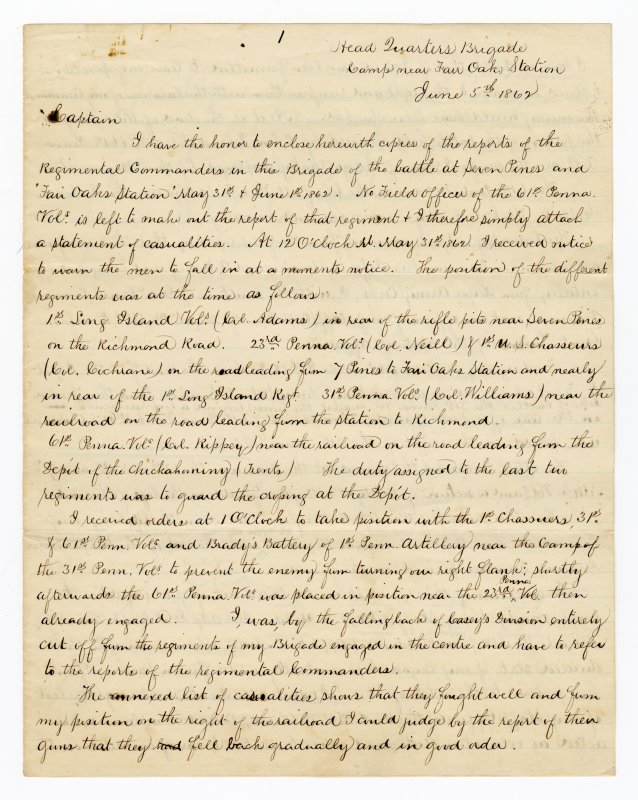 1
Head Quarters Brigade
Camp near Fair Oak Station
June 5th 1862
Captain
I have the honor to enclose herewith copies of the reports of the
Regimental Commanders in this Brigade of the battle at Seven Pines and
"Fair Oaks Station" May 31st & June 1st 1862. No Field Officer of the 61st Penna.
Vols. is left to make out the report of that regiment & I therefore simply attach
a statement of casualities. At 12 O'Clock M. May 31st 1862 I received notice
to warn the men to fall in at a moments notice. The position of the different
regiments was at the time as follows
1st Long Island Vols. (Col. Adams) in rear of the rifle pits near Seven Pines
on the Richmond Road. 23rd Penna. Vols. (Col. Neill) & 1st U.S. Chasseurs
(Col. Cochrane) on the road leading from 7 Pines to Fair Oaks Station and nearly
in rear of the 1st Long Island Regt. 31st Penna. Vols. (Col. Williams) near the
railroad on the road leading from the station to Richmond.
61st Penna. Vols. (Col. Rippey) near the railroad on the road leading from the
Depot of the Chickahominy (Trents) The duty assigned to the last two
regiments was to guard the crossing at the Depôt.
I received orders at 1 O'Clock to take position with the 1st Chassuers, 31st
& 61st Penn. Vols. and Brady's Battery of 1st Penn. Artillery near the Camp of
the 31st Penn. Vols. to prevent the enemy from turning our right flank; shortly
afterwards the 61st Penna. Vols. was placed in position near the 23rd Penna. Vol. then
already engaged. I, was, by the falling back of Casey's Division entirely
cut off from the regiments of my Brigade engaged in the centre and have to refer
to the reports of the regimental Commanders.
The annexed list of casualities shows that they fought well and from
my position on the right of the railroad I could judge by the report of their
guns that they had fell back gradually and in good order.